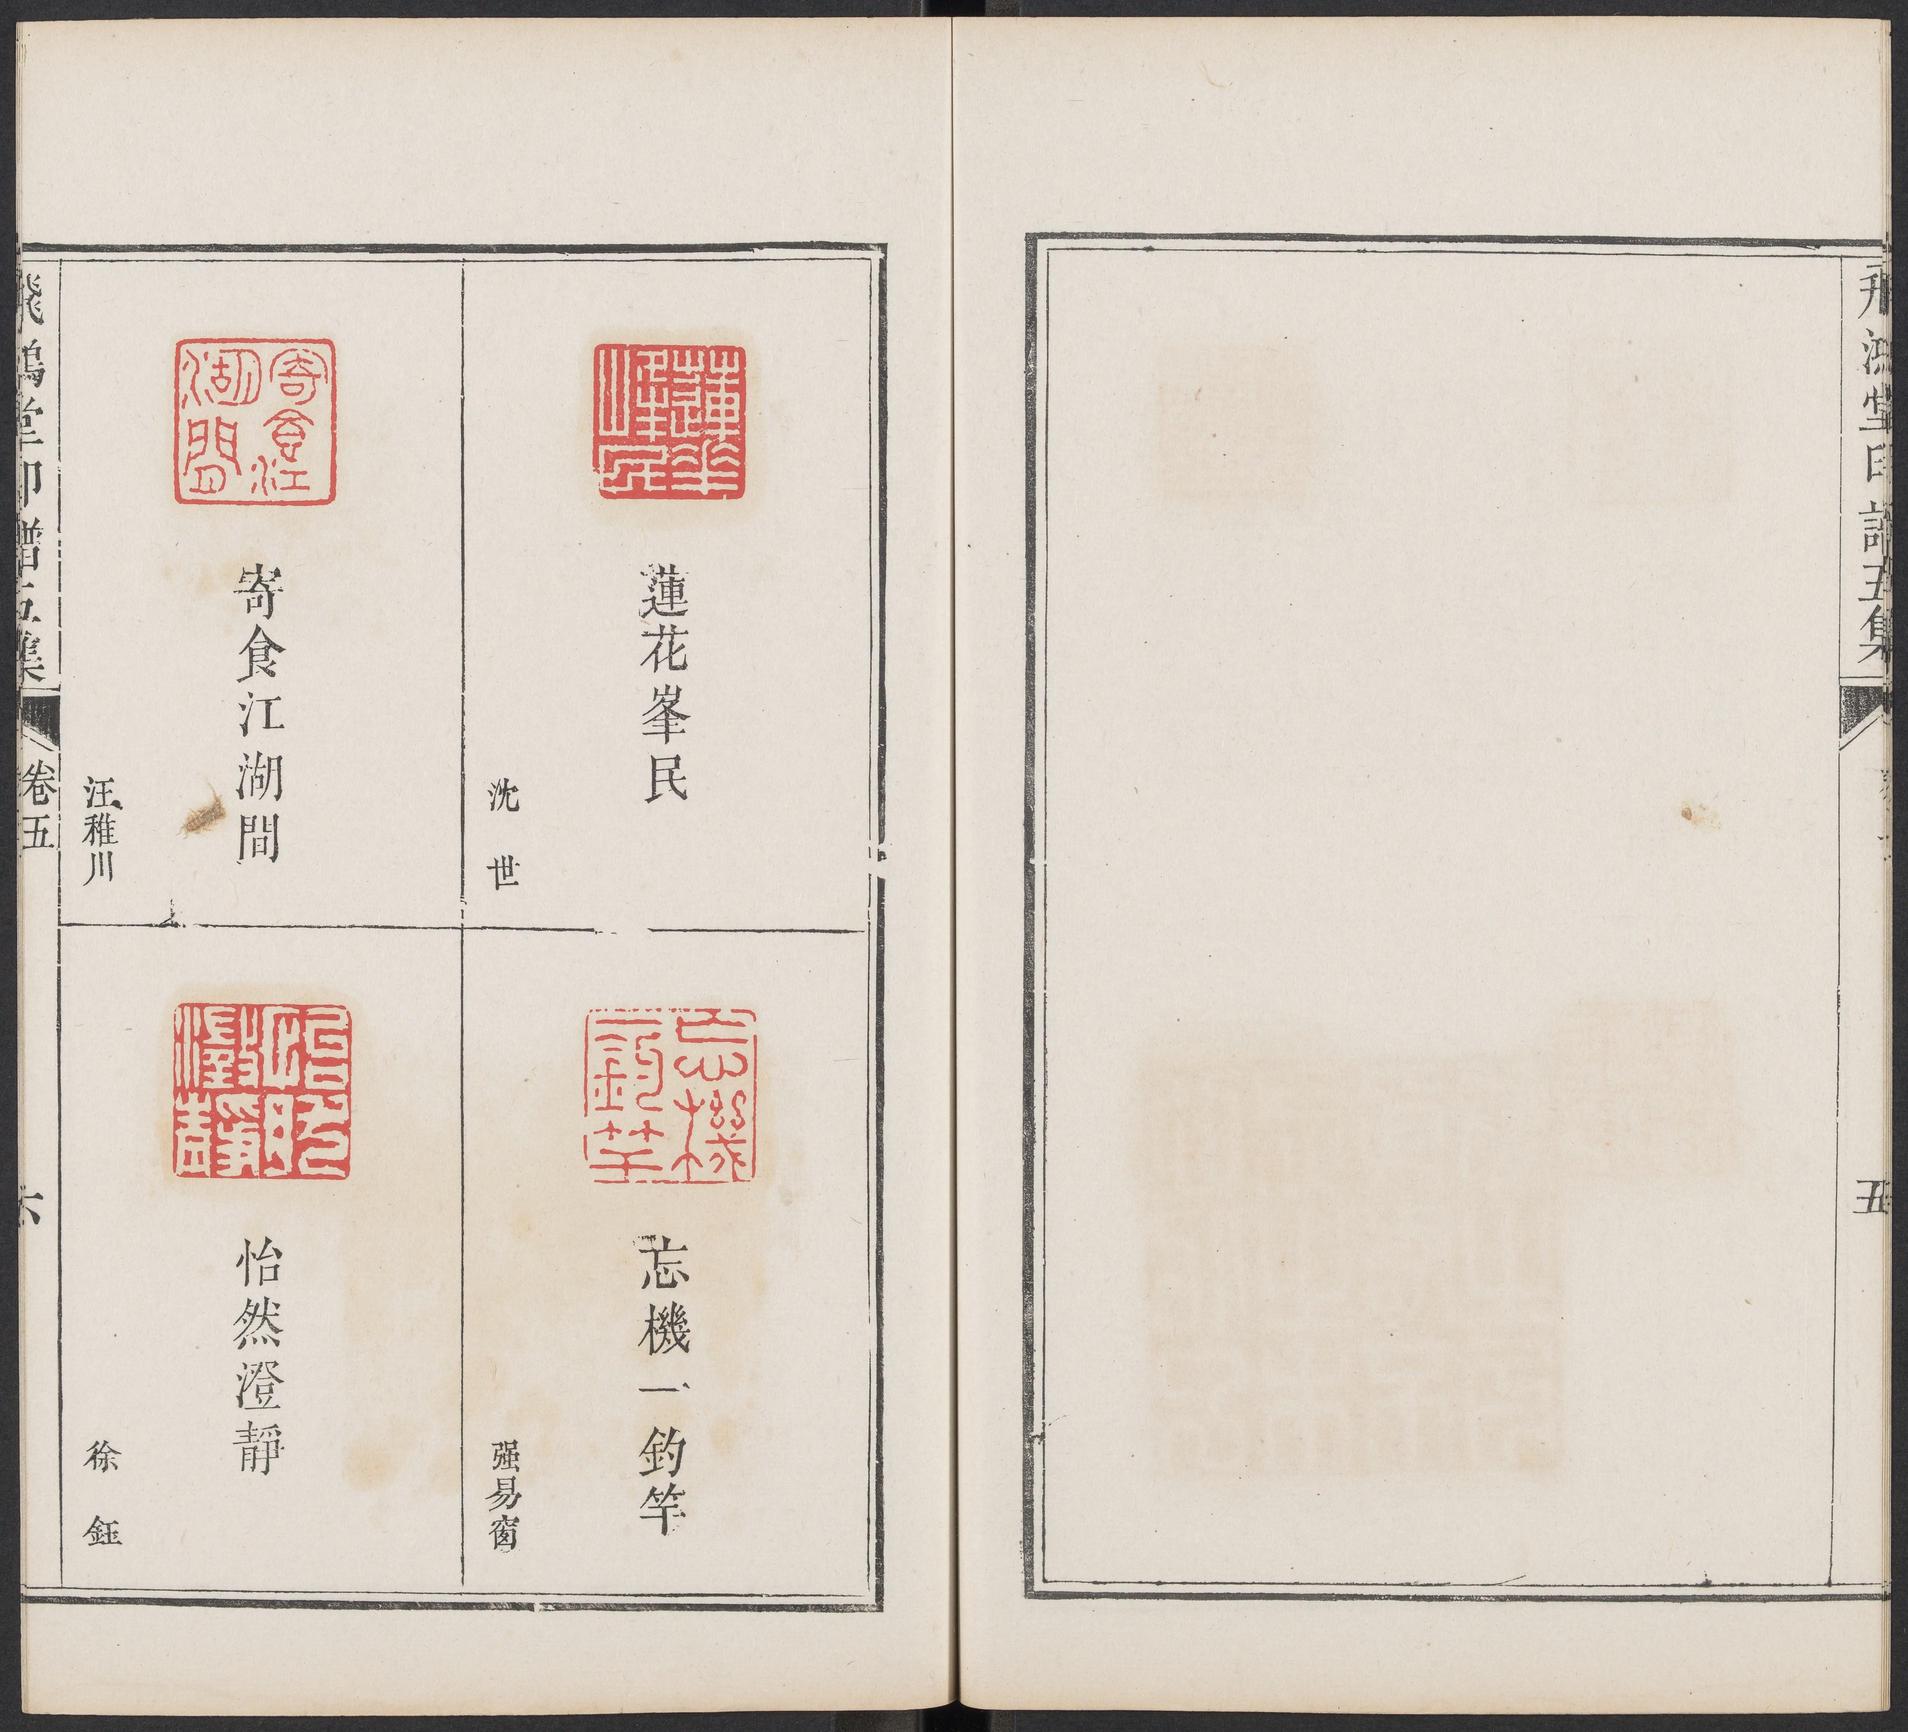 飛鴻堂印譜五集
五
蓮花峯民
沈世
忘機一釣竿
强易窗
寄食江湖間
汪稚川
怡然澄靜
徐鈺
飛鴻堂印譜五集
卷五
六